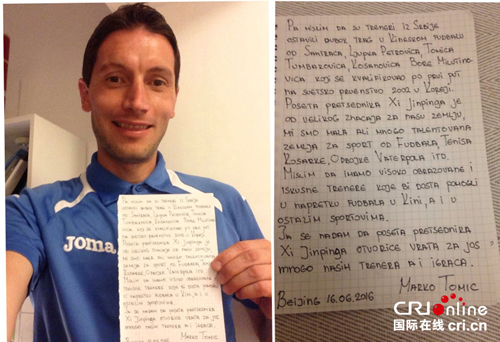 joma
PA MISLIM DA SU TRENERI IZ SRBIJE
OSTAVILI DUBOK TRAG U KINESKOM FUDBALU
OD SANTRACA, LJUPKA PETROVICA, TONICA
TUMBAKOVICA, KOSANOVICA BORE MILUTINO
VICA KOJI SE KVALIFIKOVAO PO PRVI PUT
NA SVETSKO PRVENSTVO 2002 U KOREJI
POSETA PRETSEDNIKA XI JINPINGA JE
OD VELIKOG ZNACAJA ZA NASU ZEMLJU,
MI SMO MALA ALI MNOGO TALENTOVANA
ZEMLJA ZA SPORT OD FUDBALA, TENISA
KOSARKE, ODBOJKE VATERPOLA ITD.
MISLIM DA IMAMO VISOKO OBRAZOVANE I
ISKUSNE TRENERE KOJE BI DOSTA POMOGLI
U NAPRETKU FUDBALA U KINI, A I U
OSTALIM SPORTOVIMA.
JA SE NADAM DA POSETA PRETSEDNIKA
XI JINPINGA OTVORICE VRATA ZA JOS
MNOGO NASIH TRENERA A I IGRACA.
MARKO TOMIC
BEIJING 16.06.2016
CRI online
国际在线 cri.cn